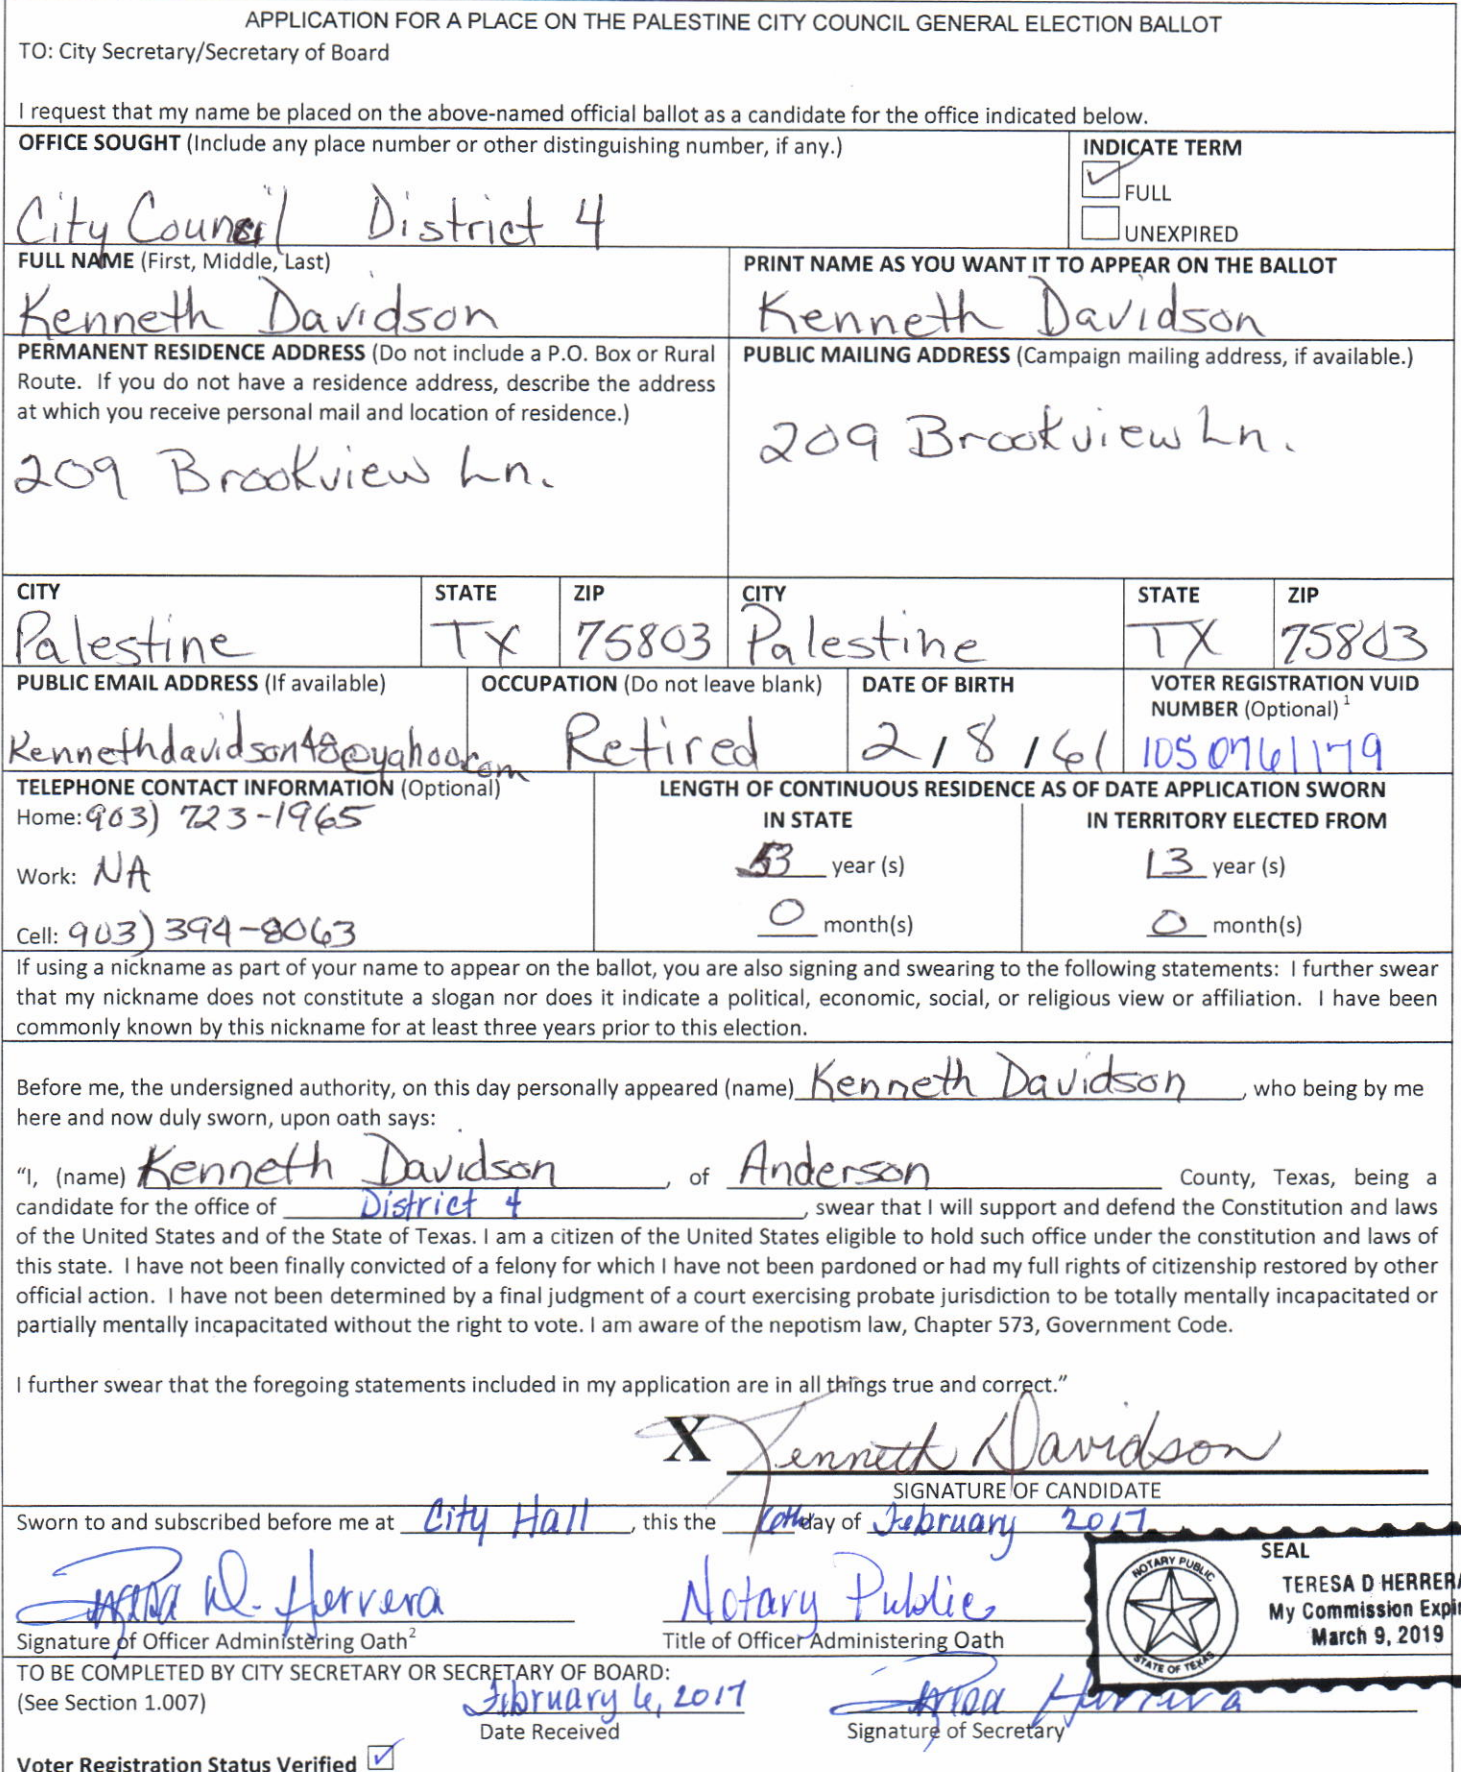 APPLICATION FOR A PLACE ON THE PALESTINE CITY COUNCIL GENERAL ELECTION BALLOT
TO: City Secretary/Secretary of Board
I request that my name be placed on the above-named official ballot as a candidate for the office indicated below.
OFFICE SOUGHT (Include any place number or other distinguishing number, if any.)
City Council District 4
INDICATE TERM
FULL
UNEXPIRED
FULL NAME (First, Middle, Last)
Kenneth Davidson
PRINT NAME AS YOU WANT IT TO APPEAR ON THE BALLOT
Kenneth Davidson
PERMANENT RESIDENCE ADDRESS (Do not include a P.O. Box or Rural
Route. If you do not have a residence address, describe the address
at which you receive personal mail and location of residence.)
209 Brookview Ln.
PUBLIC MAILING ADDRESS (Campaign mailing address, if available.)
209 Brookview Ln.
CITY STATE ZIP CITY STATE ZIP
Palestine TX 75803 Palestine TX 75803
PUBLIC EMAIL ADDRESS (If available)
Kennethdavidson48@yahoo.com
OCCUPATION (Do not leave blank)
Retired
DATE OF BIRTH
2/8/61
VOTER REGISTRATION VUID
NUMBER (Optional) 1
1050761179
TELEPHONE CONTACT INFORMATION (Optional)
Home: 903) 723-1965
Work: NA
Cell: 903) 394-8063
LENGTH OF CONTINUOUS RESIDENCE AS OF DATE APPLICATION SWORN
IN STATE
53 year (s)
0 month(s)
IN TERRITORY ELECTED FROM
13 year (s)
0 month(s)
If using a nickname as part of your name to appear on the ballot, you are also signing and swearing to the following statements: I further swear
that my nickname does not constitute a slogan nor does it indicate a political, economic, social, or religious view or affiliation. I have been
commonly known by this nickname for at least three years prior to this election.
Before me, the undersigned authority, on this day personally appeared (name) Kenneth Davidson, who being by me
here and now duly sworn, upon oath says:
"I, (name) Kenneth Davidson, of Anderson County, Texas, being a
candidate for the office of District 4, swear that I will support and defend the Constitution and laws
of the United States and of the State of Texas. I am a citizen of the United States eligible to hold such office under the constitution and laws of
this state. I have not been finally convicted of a felony for which I have not been pardoned or had my full rights of citizenship restored by other
official action. I have not been determined by a final judgment of a court exercising probate jurisdiction to be totally mentally incapacitated or
partially mentally incapacitated without the right to vote. I am aware of the nepotism law, Chapter 573, Government Code.
I further swear that the foregoing statements included in my application are in all things true and correct."
X Kenneth Davidson
SIGNATURE OF CANDIDATE
Sworn to and subscribed before me at City Hall, this the 6th day of February 2017
D. Herrera Notary Public
Signature of Officer Administering Oath2 Title of Officer Administering Oath
SEAL
NOTARY PUBLIC
STATE OF TEXAS
TERESA D HERRERA
My Commission Expi
March 9, 2019
TO BE COMPLETED BY CITY SECRETARY OR SECRETARY OF BOARD:
(See Section 1.007)
February 6, 2017 Herrera
Date Received Signature of Secretary
Voter Registration Status Verified